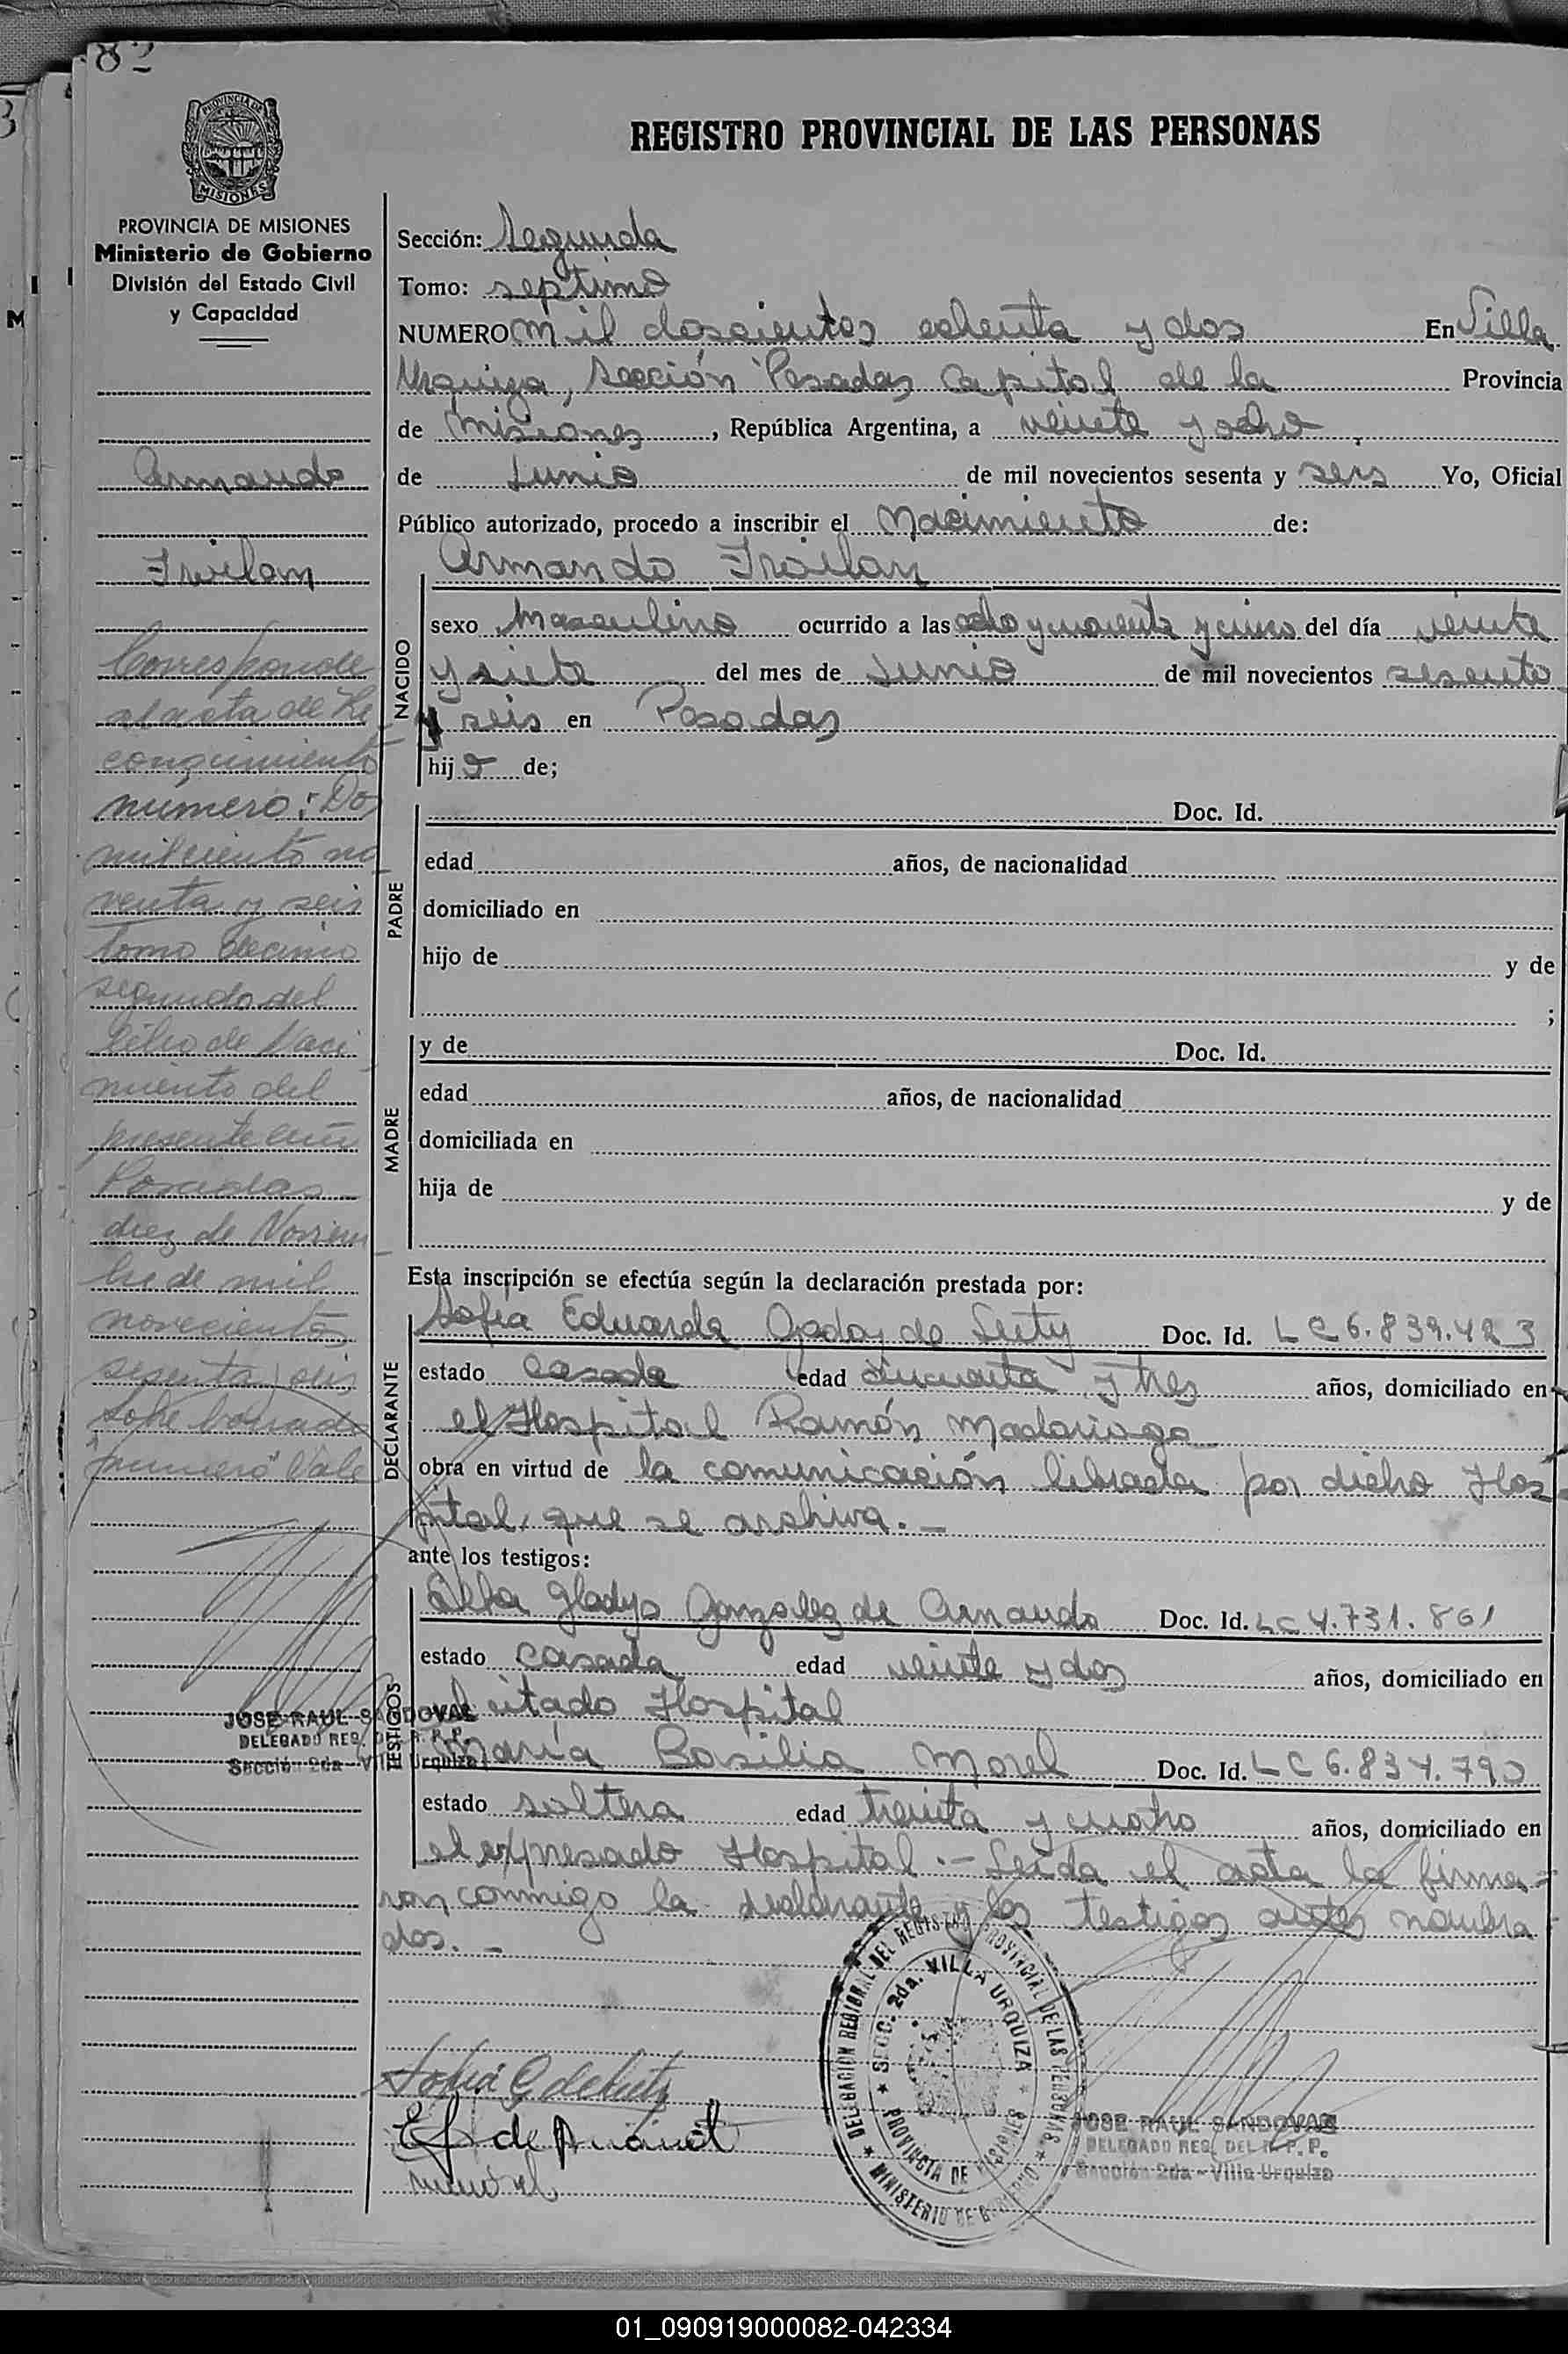 82
PROVINCIA DE
MISIONES
REGISTRO PROVINCIAL DE LAS PERSONAS
PROVINCIA DE MISIONES
Ministerio de Gobierno
División del Estado Civil
y Capacidad
Armando
Froilan
Corresponde
al acta de Re
conocimiento
número: Dos
mil ciento no
venta y seis
tomo decimo
segundo del
libro de Naci
miento del
presente año
Posadas
diez de Noviem
bre de mil
novecientos
sesenta y seis
Sobre borrado
"primero" Vale
JOSE RAUL SANDOVAL
DELEGADO REG. DEL R. P. P.
Sección 2da-Villa Urquiza
Sección: Segunda
Tomo: septimo
NUMERO mil doscientos ochenta y dos En Villa
Urquiza, Sección Posadas Capital de la Provincia
de Misiones, República Argentina, a veinte y ocho
de Junio de mil novecientos sesenta y seis Yo, Oficial
Público autorizado, procedo a inscribir el Nacimiento de:
Armando Froilan
NACIDO
sexo Masculino ocurrido a las ocho y cuarenta y cinco del día veinte
y siete del mes de Junio de mil novecientos sesenta
y seis en Posadas
hijo de;
PADRE
Doc. Id.
edad años, de nacionalidad
domiciliado en
hijo de y de
;
MADRE
y de Doc. Id.
edad años, de nacionalidad
domiciliada en
hija de y de
Esta inscripción se efectúa según la declaración prestada por:
DECLARANTE
Sofia Eduarda Godoy de Doc. Id. LC 6.839.423
estado casada edad cincuenta y tres años, domiciliado en
el Hospital Ramón Madariaga
obra en virtud de la comunicación librada por dicho Hos
pital, que se archiva. -
ante los testigos:
TESTIGOS
Elba Gladys Gonzalez de Doc. Id. LC 4.731.861
estado casada edad veinte y dos años, domiciliado en
el citado Hospital
María Basilia Morel Doc. Id. LC 6.834.790
estado soltera edad treinta y cuatro años, domiciliado en
el expresado Hospital. - Leida el acta la firma=
ron conmigo la declarante y los testigos antes nombra
dos. -
DELEGACION REGIONAL DEL REGISTRO PROVINCIAL DE LAS PERSONAS
SECC. 2da. VILLA URQUIZA
PROVINCIA DE MISIONES
MINISTERIO DE GOBIERNO
JOSE RAUL SANDOVAL
DELEGADO REG. DEL R. P. P.
Sección 2da-Villa Urquiza
01_090919000082-042334